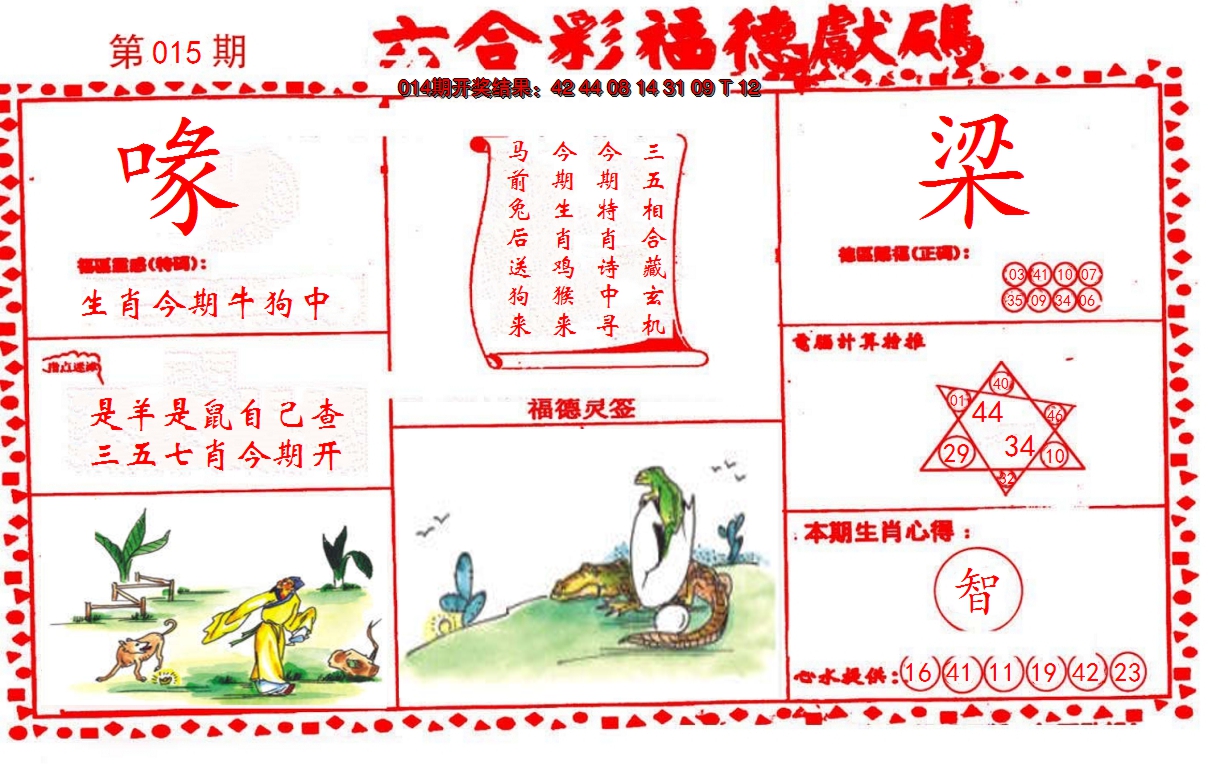 第015期
六合彩福德獻碼
014期开奖结果：42 44 08 14 31 09 T 12
喙
福區靈感(特碼)：
生肖今期牛狗中
指点迷津
是羊是鼠自己查
三五七肖今期开
三五相合藏玄机
今期特肖诗中寻
今期生肖鸡猴来
马前兔后送狗来
福德灵签
梁
德區賜福(正碼)：
03 41 10 07
35 09 34 06
電腦計算榜推
40
01 44 46
29 34 10
32
本期生肖心得：
智
心水提供：16 41 11 19 42 23